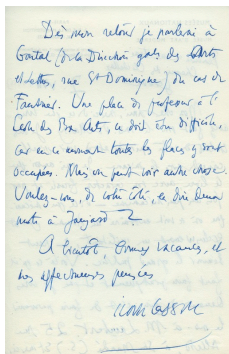 Dès mon retour je parlerai à
Goutal (de la Direction gale des Arts
et Lettres, rue St Dominique) du cas de
Fautrier. Une place de professeur à l'
Ecole des Bx Arts, ce doit être difficile,
car en ce moment toutes les places y sont
occupées. Mais on peut voir autre chose.
Voulez-vous, de votre côté, en dire deux
mots à Jaujard ?
A bientôt, bonnes vacances, et
nos affectueuses pensées